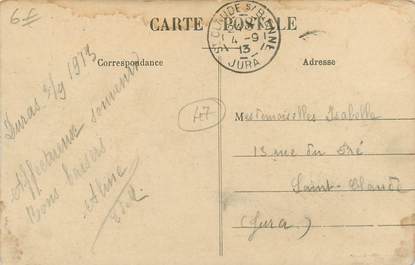 6 F
CARTE POSTALE
ST CLAUDE S/ BIENNE
4 -9
13
JURA
Correspondance
Adresse
Duras 3/9 1913
Affectueux souvenir
Bons baisers
Aline
47
Mesdemoiselles Isabelle
13 rue du Pré
Saint-Claude
(Jura)